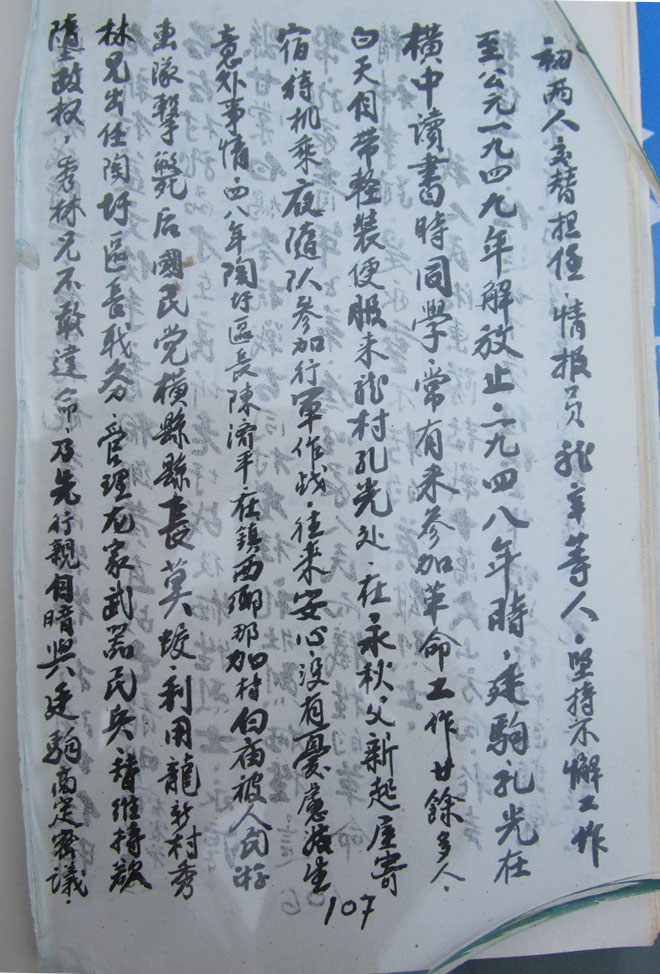 初两人交替担任·情报员龙辛等人·坚持不懈工作
至公元一九四九年解放止·一九四八年時·廷駒孔光在
橫中讀書時同學·常有来参加革命工作廿餘多人·
白天自带輕裝便服来龙村孔光处·在永秋父新起屋寄
宿待机乘夜隨队参加行軍作战·往来安心·没有憂慮發生
意外事情·四八年陶圩區長陳濟平在鎮西鄉那加村白庙被人民游
击隊擊斃后國民党橫縣縣長莫蛟·利用龍新村秀
林兄出任陶圩區長戰务·管理龙家武器民兵維持
墮政权·秀林兄不敢違命乃先行親自暗與廷駒商定密議·
107